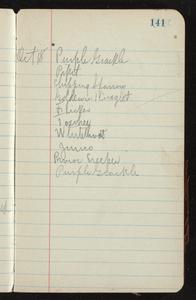 141
Oct 8 Purple Grackle
Chipping Sparrow
Golden Kinglet
Flicker
Towhee
Whitethroat
Junco
Brown Creeper
Purple Grackle